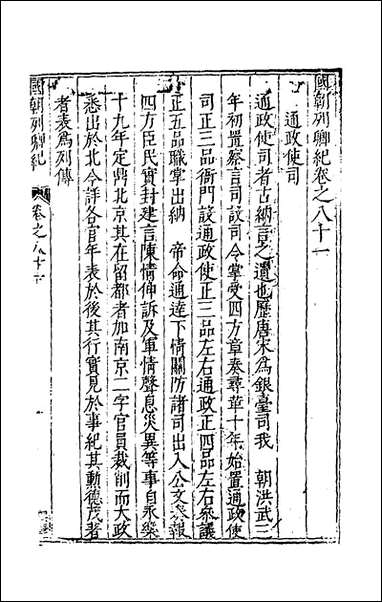 國朝列卿紀卷之八十一
通政使司
通政使司者古納言之遺也歷唐宋爲銀臺司我　朝洪武三
年初置察言司設司令掌受四方章奏尋革十年始置通政使
司正三品衙門設通政使正三品左右通政正四品左右參議
正五品職掌出納　帝命通達下情關防諸司出入公文奏報
四方臣民實封建言陳情伸訴及軍情聲息災異等事自永樂
十九年定鼎北京其在留都者加南京二字官員裁削而大政
悉出於北今詳各官年表於後其行實見於事紀其勳德茂著
者表爲列傳
國朝列卿紀
卷之八十一